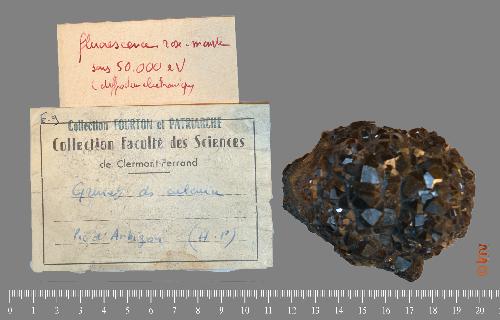 fluorescence rose-mauve
sous 50.000 eV
E-9
Collection FOURTON et PATRIARCHE
Collection Faculté des Sciences
de Clermont-Ferrand
Grenat ds
Pic d'Arbizon (H.P)
0 1 2 3 4 5 6 7 8 9 10 11 12 13 14 15 16 17 18 19 20